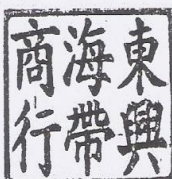 東興
海帶
商行